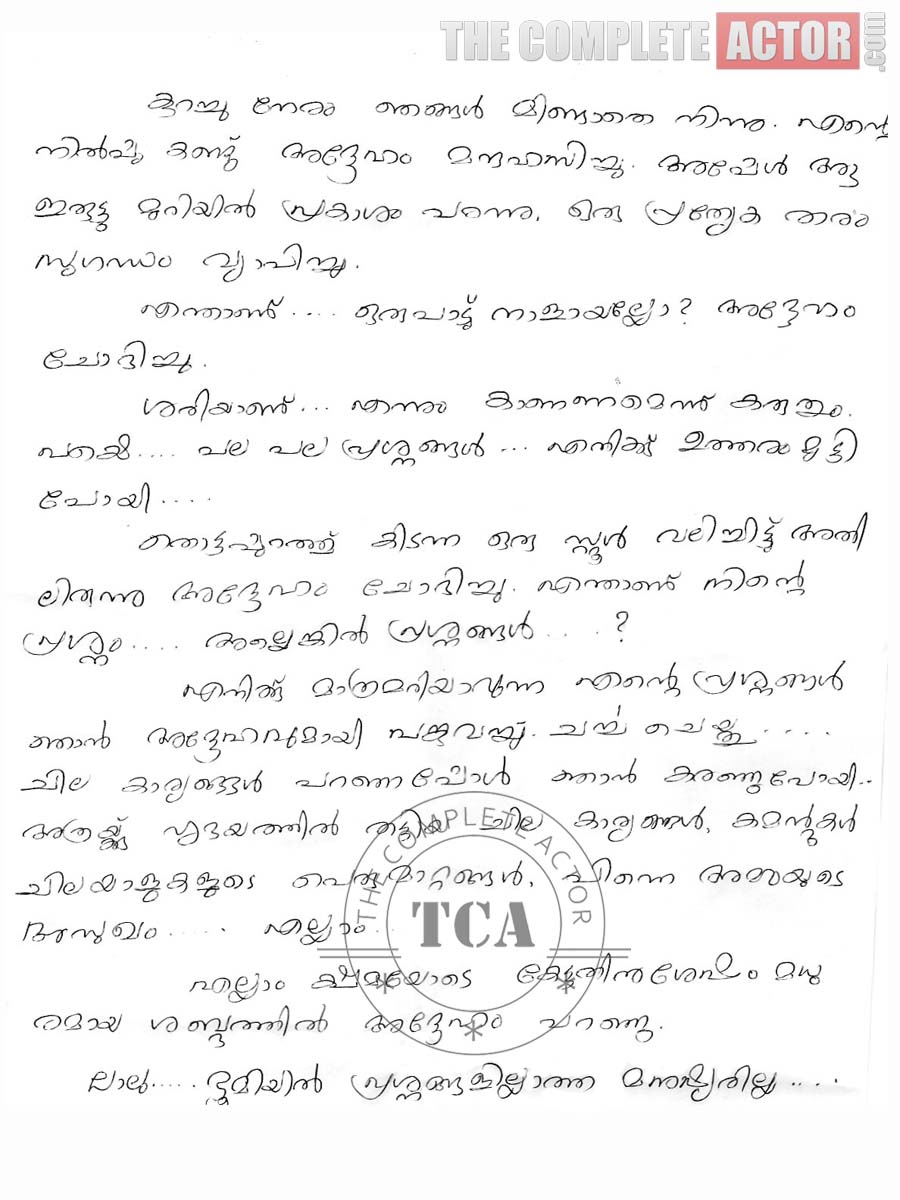 THE COMPLETE ACTOR .com
കുറച്ചു നേരം ഞങ്ങൾ മിണ്ടാതെ നിന്നു. എന്റെ
നിൽപ്പു കണ്ട് അദ്ദേഹം മന്ദഹസിച്ചു. അപ്പോൾ ആ
ഇരുട്ടു മുറിയിൽ പ്രകാശം പരന്നു. ഒരു പ്രത്യേക തരം
സുഗന്ധം വ്യാപിച്ചു.
എന്താണ്.... ഒരുപാട് നാളായല്ലോ? അദ്ദേഹം
ചോദിച്ചു.
ശരിയാണ്... എന്നും കാണണമെന്ന് കരുതും.
പക്ഷെ.... പല പല പ്രശ്നങ്ങൾ... എനിക്ക് ഉത്തരം മുട്ടി
പോയി....
തൊട്ടപ്പുറത്ത് കിടന്ന ഒരു സ്റ്റൂൾ വലിച്ചിട്ട് അതി
ലിരുന്നു അദ്ദേഹം ചോദിച്ചു. എന്താണ് നിന്റെ
പ്രശ്നം..... അല്ലെങ്കിൽ പ്രശ്നങ്ങൾ....?
എനിക്കു മാത്രമറിയാവുന്ന എന്റെ പ്രശ്നങ്ങൾ
ഞാൻ അദ്ദേഹവുമായി പങ്കുവയ്ച്ചു. ചർച്ച ചെയ്തു.....
ചില കാര്യങ്ങൾ പറഞ്ഞപ്പോൾ ഞാൻ കരഞ്ഞുപോയി..
അത്രയ്ക്ക് ഹൃദയത്തിൽ തട്ടിയ ചില കാര്യങ്ങൾ, കമന്റുകൾ
ചിലയാളുകളുടെ പെരുമാറ്റങ്ങൾ, പിന്നെ അമ്മയുടെ
അസുഖം..... എല്ലാം..
എല്ലാം ക്ഷമയോടെ കേട്ടതിനുശേഷം മധു
രമായ ശബ്ദത്തിൽ അദ്ദേഹം പറഞ്ഞു.
ലാലു..... ഭൂമിയിൽ പ്രശ്നങ്ങളില്ലാത്ത മനുഷ്യരില്ല....
THE COMPLETE ACTOR
TCA